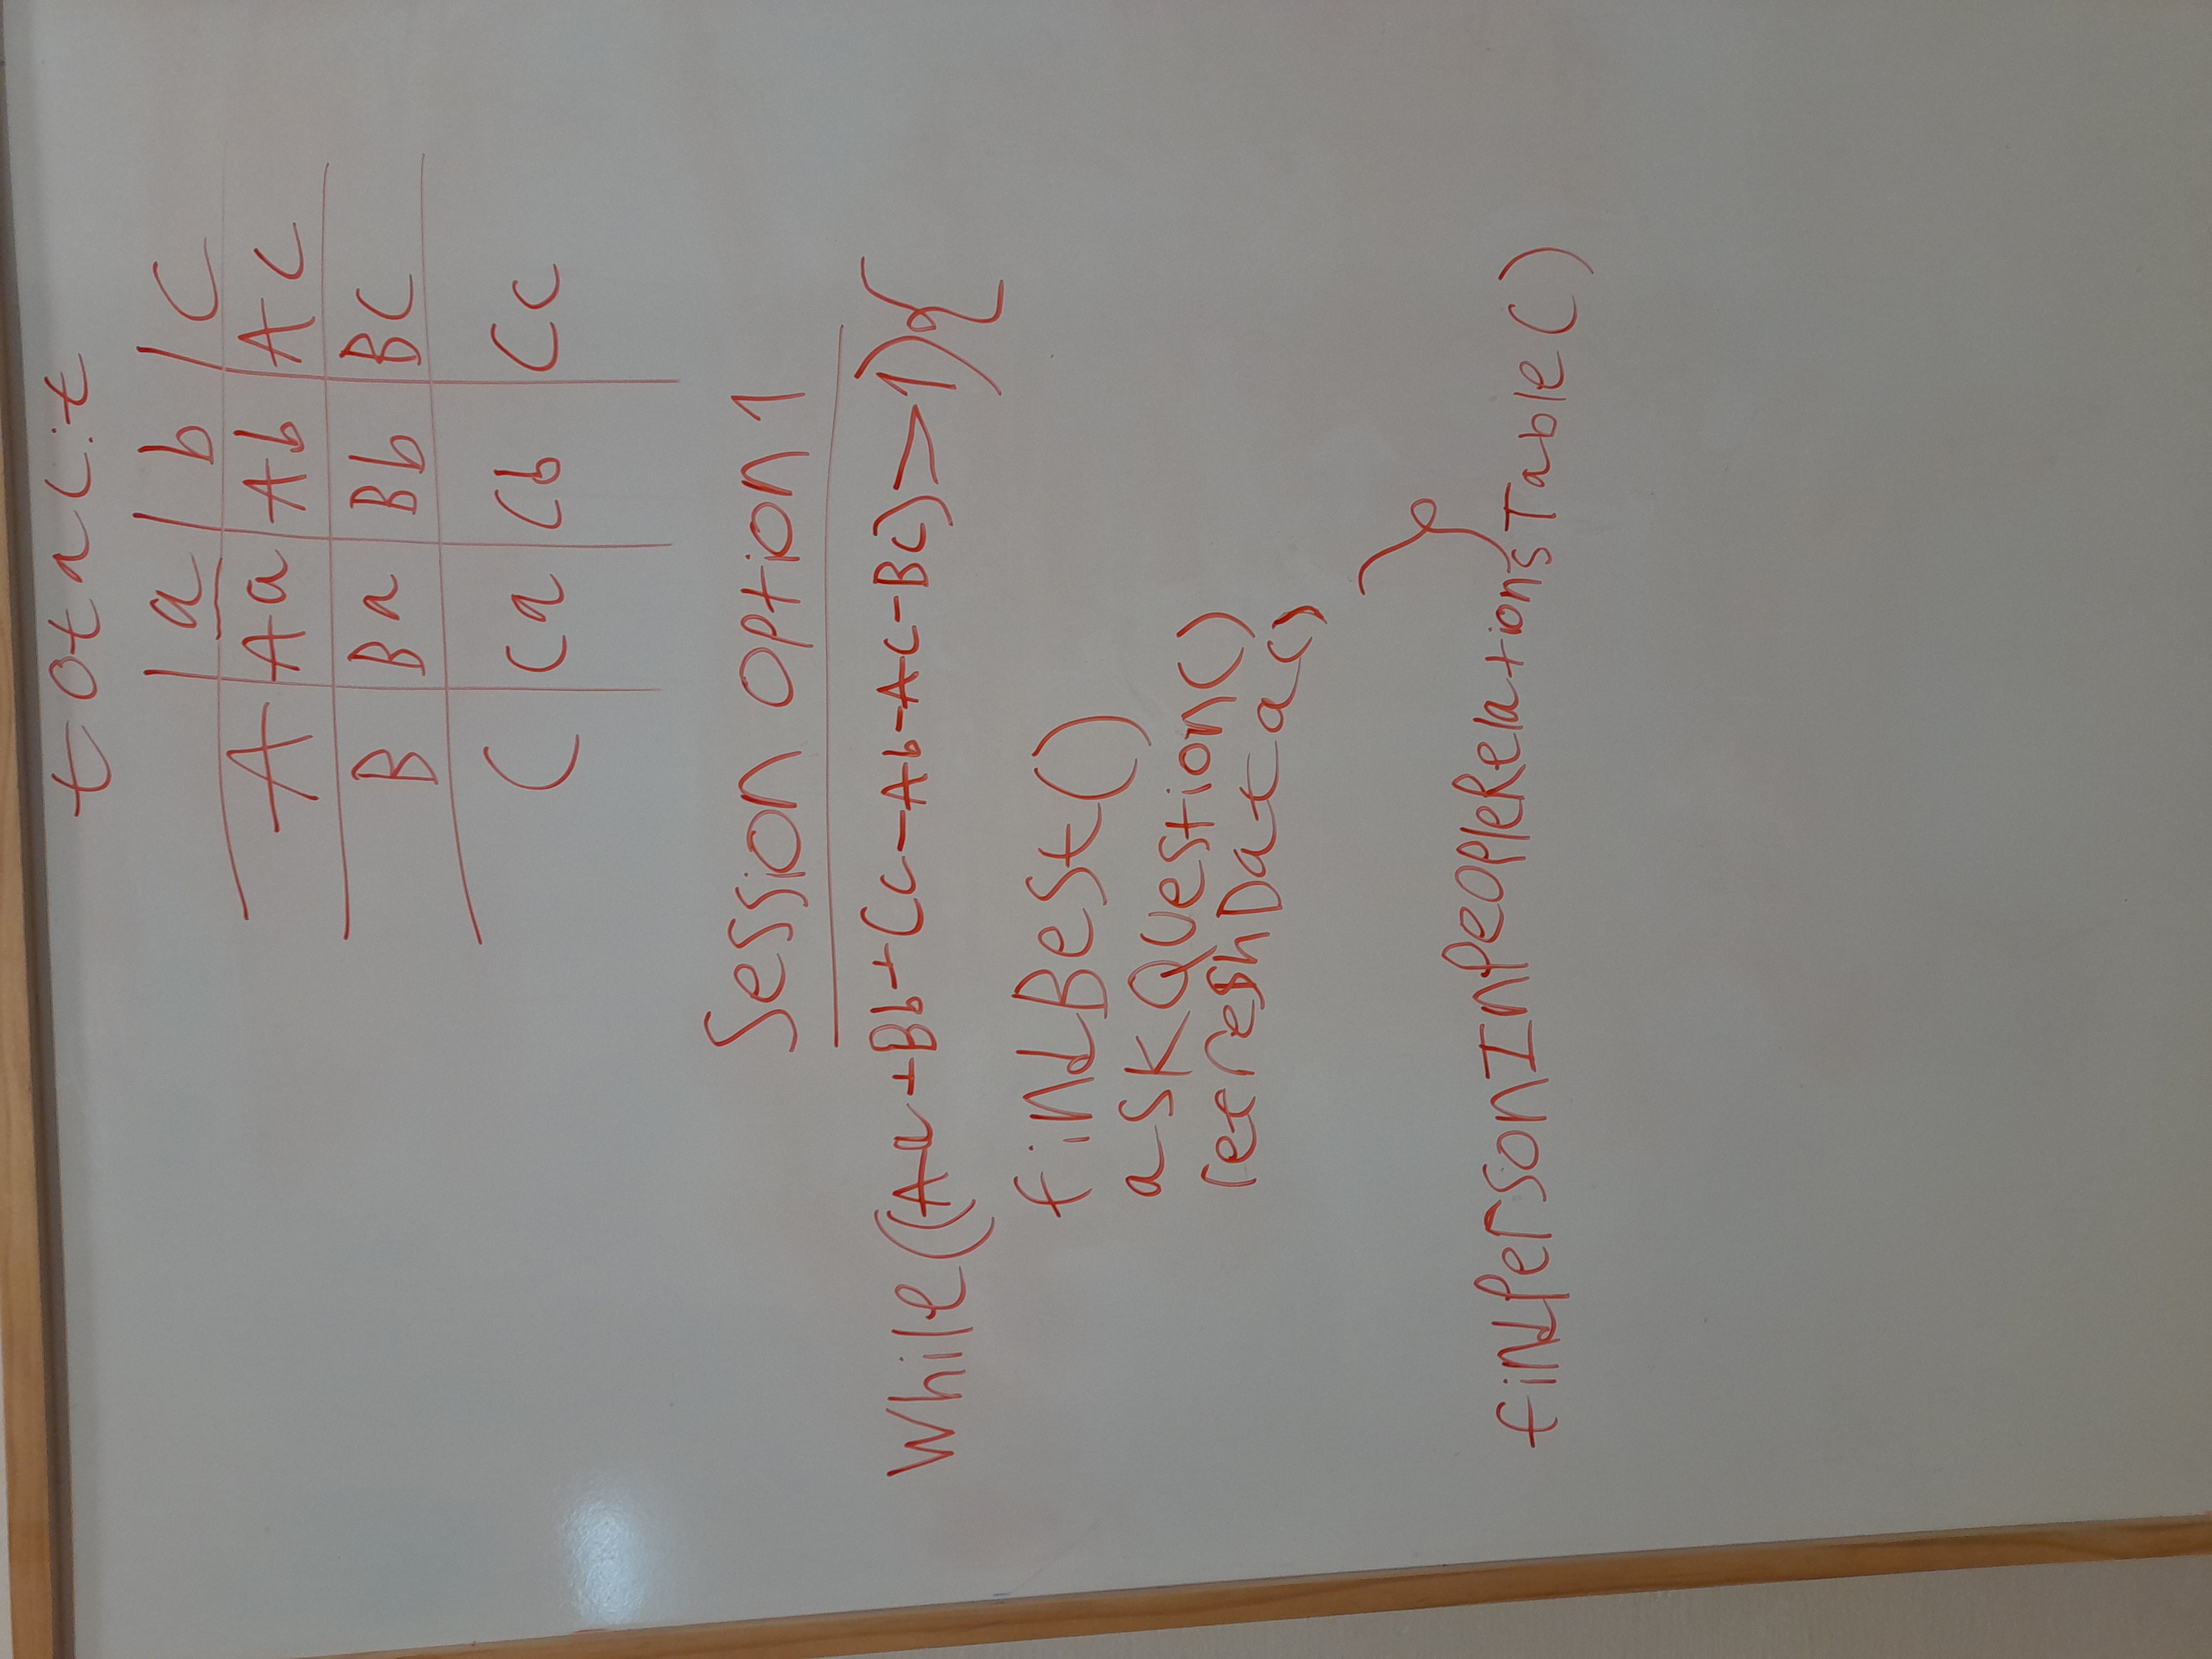 total:t
a b c
A Aa Ab Ac
B Ba Bb Bc
C Ca Cb Cc
Session option 1
While((Aa+Bb+Cc-Ab-Ac-Bc)>1){
findBest()
askQuestion()
refreshData()
}
findPersonInPeopleRelationsTable()